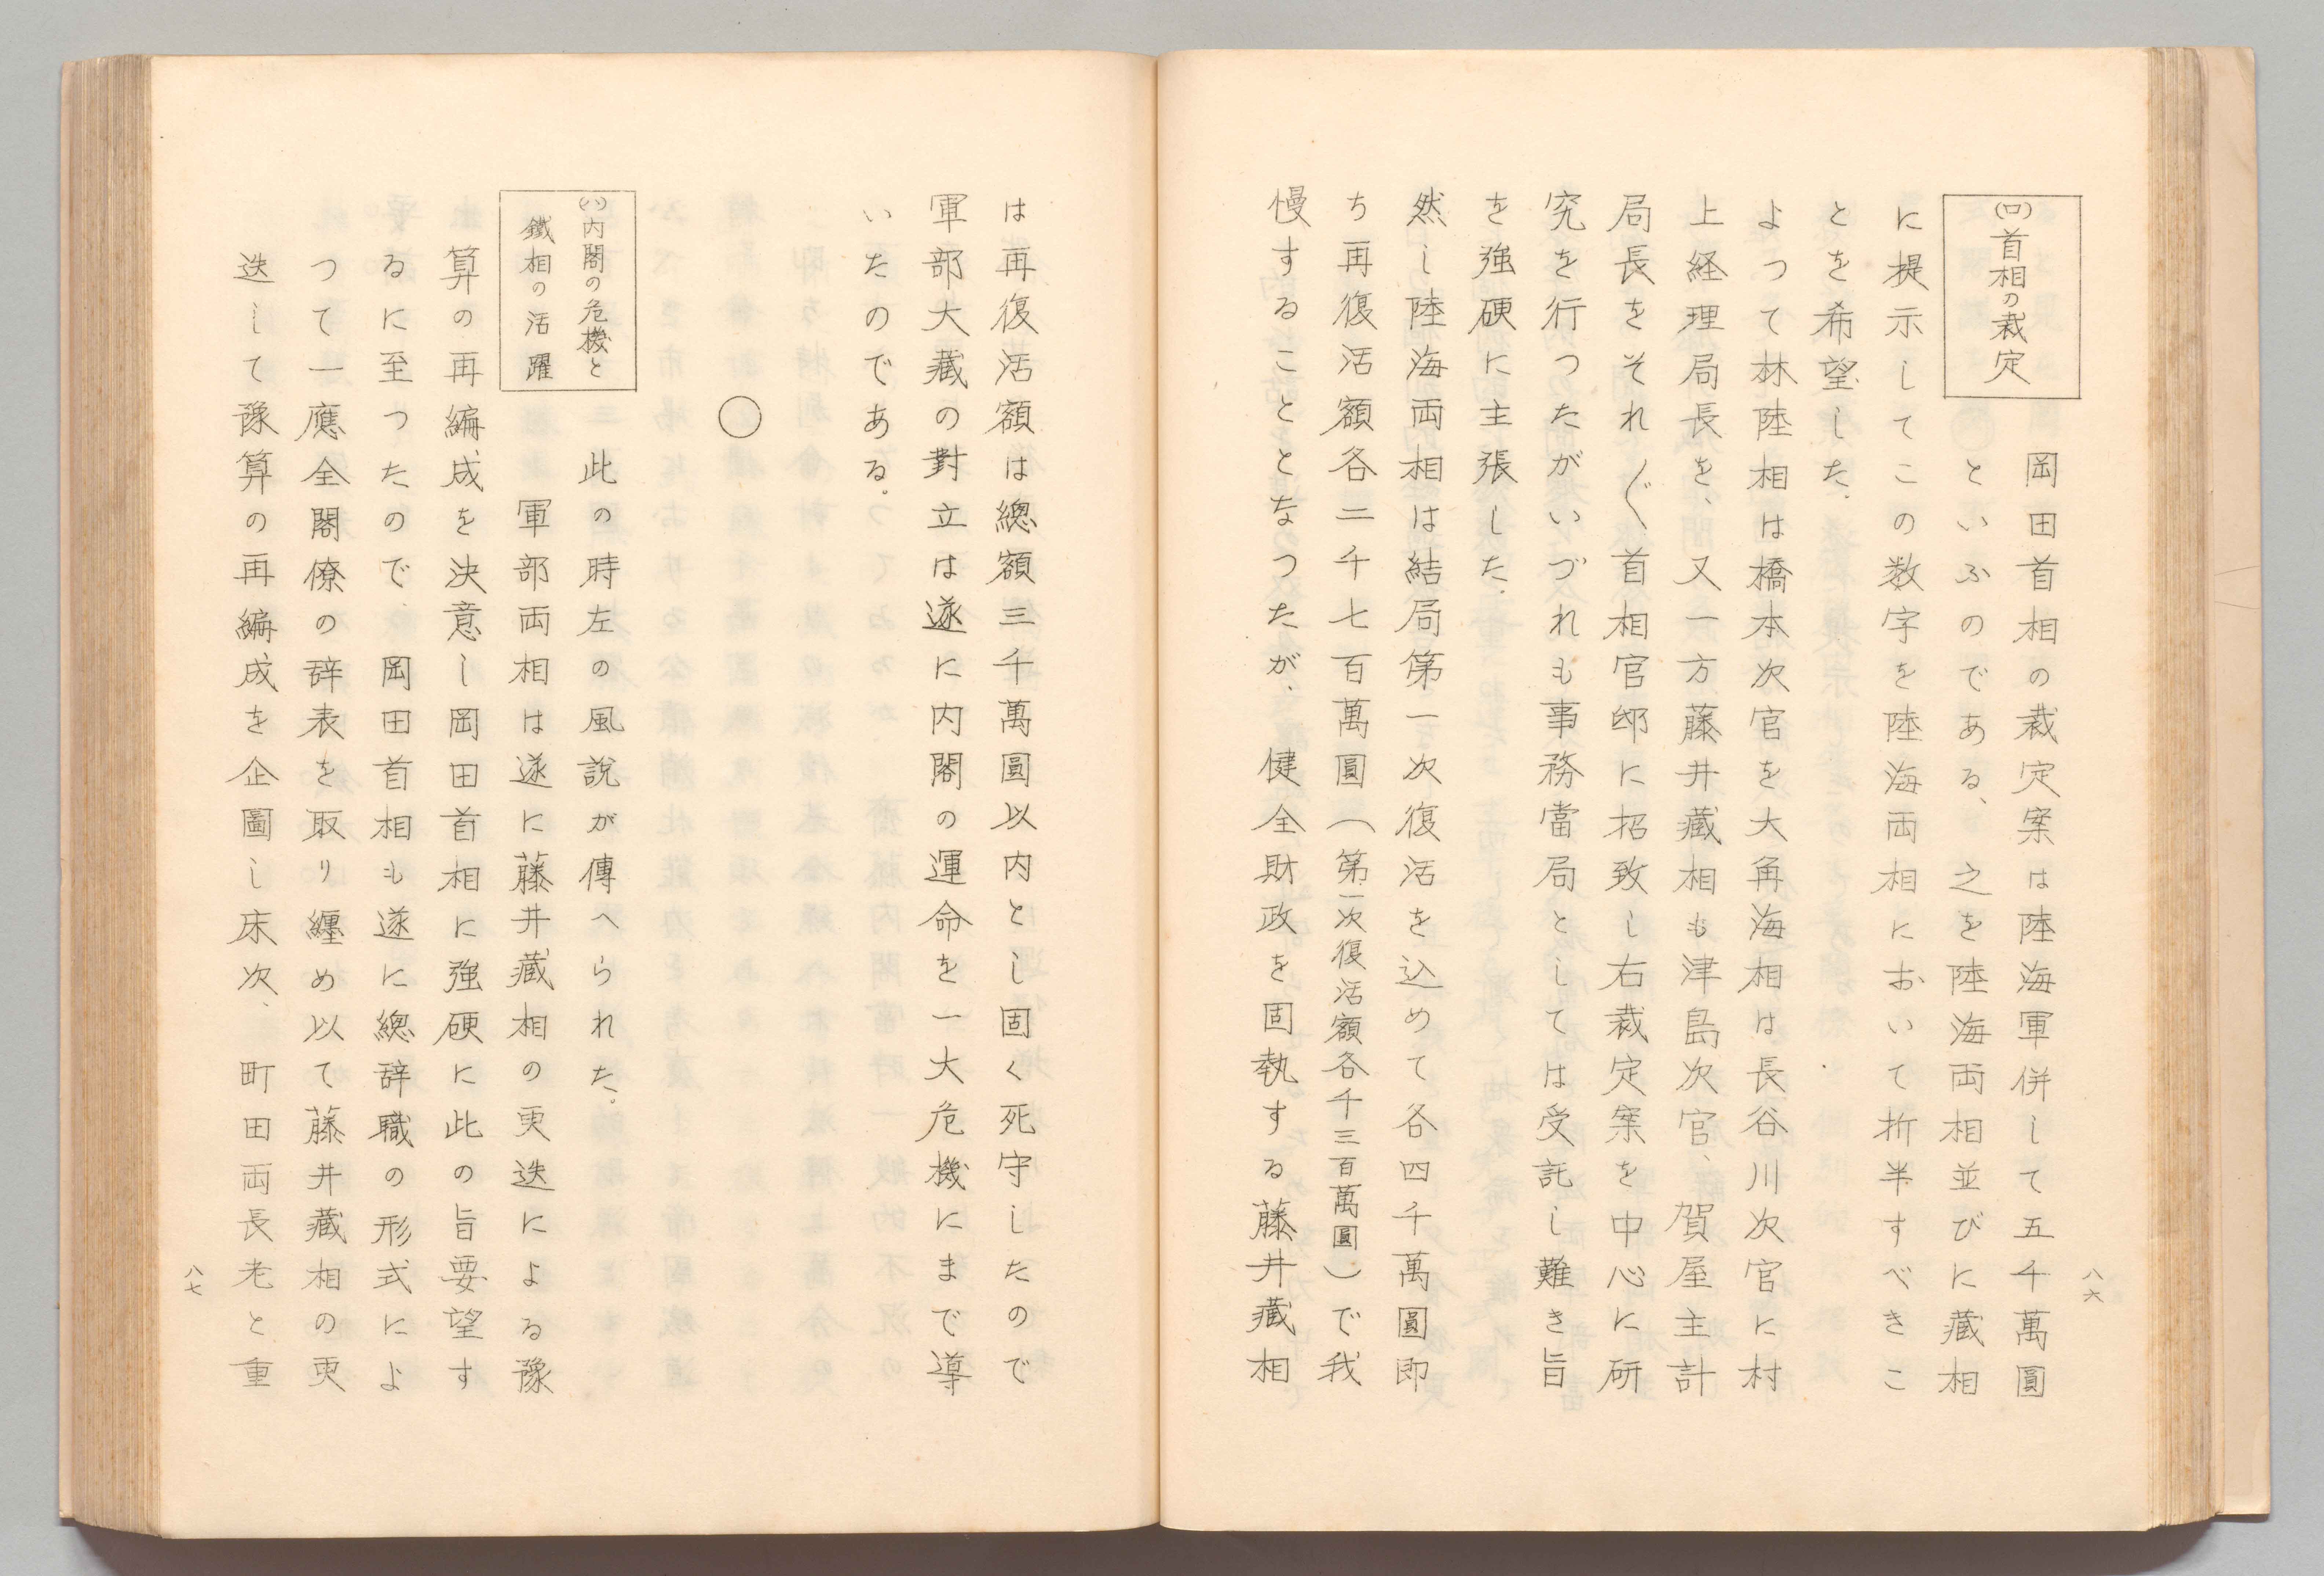 (ロ)首相の裁定
岡田首相の裁定案は陸海軍併して五千萬圓
といふのである、之を陸海両相並びに藏相
に提示してこの数字を陸海両相において折半すべきこ
とを希望した。
よつて林陸相は橋本次官を大角海相は長谷川次官に村
上経理局長を、又一方藤井藏相も津島次官、賀屋主計
局長をそれ〲首相官邸に招致し右裁定案を中心に研
究を行つたがいづれも事務當局としては受託し難き旨
を強硬に主張した。
然し陸海両相は結局第一次復活を込めて各四千萬圓即
ち再復活額各二千七百萬圓(第一次復活額各千三百萬圓)で我
慢することとなつたが、健全財政を固執する藤井藏相
八六
は再復活額は總額三千萬圓以内とし固く死守したので
軍部大藏の對立は遂に内閣の運命を一大危機にまで導
いたのである。
○
(ハ)内閣の危機と
鐵相の活躍
此の時左の風説が傳へられた。
軍部両相は遂に藤井藏相の更迭による豫
算の再編成を決意し岡田首相に強硬に此の旨要望す
るに至つたので、岡田首相も遂に總辞職の形式によ
つて一應全閣僚の辞表を取り纏め以て藤井藏相の更
迭して豫算の再編成を企圖し床次、町田両長老と重
八七